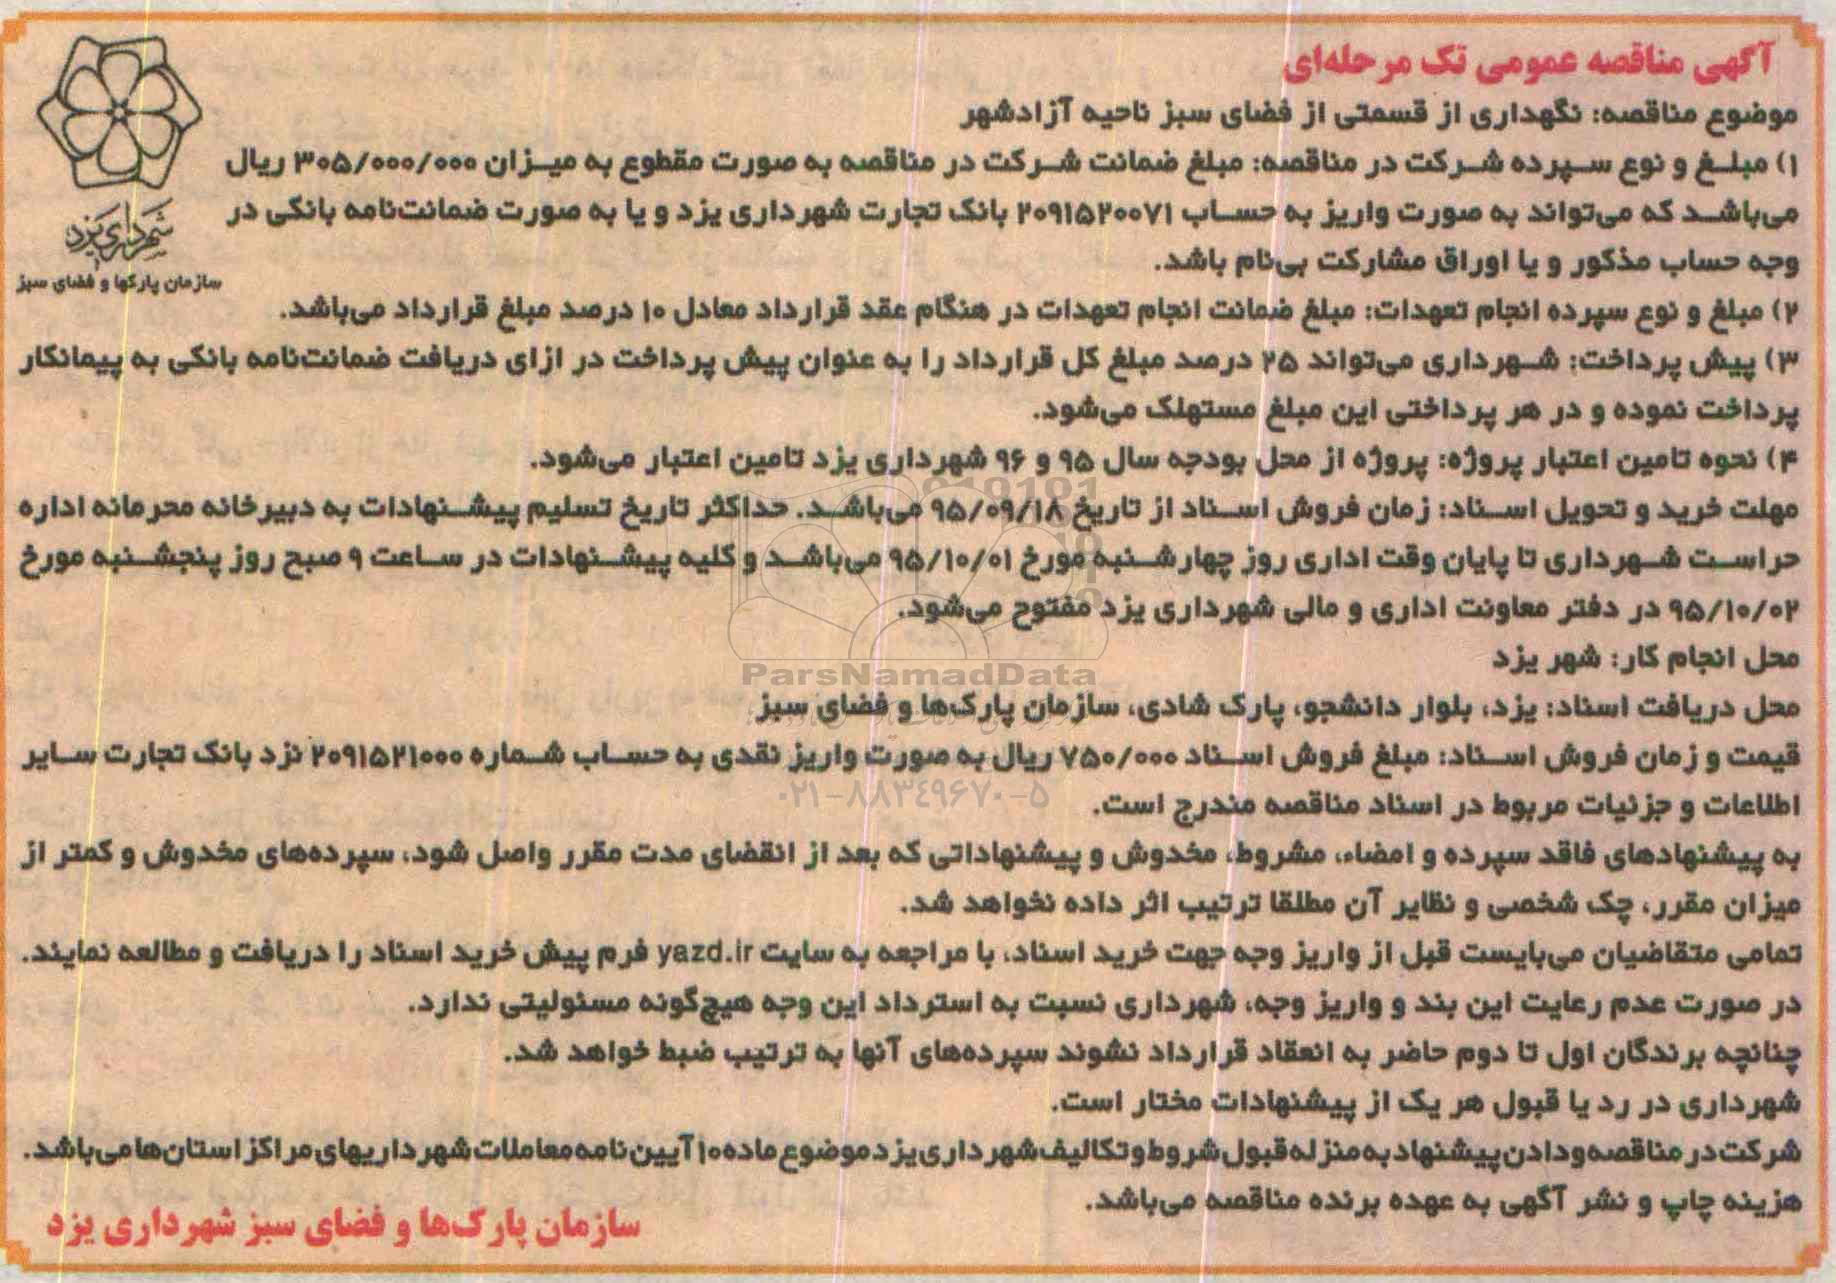 آگهی مناقصه عمومی تک مرحله‌ای
موضوع مناقصه: نگهداری از قسمتی از فضای سبز ناحیه آزادشهر
۱) مبلغ و نوع سپرده شرکت در مناقصه: مبلغ ضمانت شرکت در مناقصه به صورت مقطوع به میزان ۳۰۵/۰۰۰/۰۰۰ ریال
می‌باشد که می‌تواند به صورت واریز به حساب ۲۰۹۱۵۲۰۰۷۱ بانک تجارت شهرداری یزد و یا به صورت ضمانت‌نامه بانکی در
وجه حساب مذکور و یا اوراق مشارکت بی‌نام باشد.
شهرداری یزد
سازمان پارکها و فضای سبز
۲) مبلغ و نوع سپرده انجام تعهدات: مبلغ ضمانت انجام تعهدات در هنگام عقد قرارداد معادل ۱۰ درصد مبلغ قرارداد می‌باشد.
۳) پیش پرداخت: شهرداری می‌تواند ۲۵ درصد مبلغ کل قرارداد را به عنوان پیش پرداخت در ازای دریافت ضمانت‌نامه بانکی به پیمانکار
پرداخت نموده و در هر پرداختی این مبلغ مستهلک می‌شود.
۴) نحوه تامین اعتبار پروژه: پروژه از محل بودجه سال ۹۵ و ۹۶ شهرداری یزد تامین اعتبار می‌شود.
مهلت خرید و تحویل اسناد: زمان فروش اسناد از تاریخ ۹۵/۰۹/۱۸ می‌باشد. حداکثر تاریخ تسلیم پیشنهادات به دبیرخانه محرمانه اداره
حراست شهرداری تا پایان وقت اداری روز چهارشنبه مورخ ۹۵/۱۰/۰۱ می‌باشد و کلیه پیشنهادات در ساعت ۹ صبح روز پنجشنبه مورخ
۹۵/۱۰/۰۲ در دفتر معاونت اداری و مالی شهرداری یزد مفتوح می‌شود.
محل انجام کار: شهر یزد
ParsNamadData
محل دریافت اسناد: یزد، بلوار دانشجو، پارک شادی، سازمان پارک‌ها و فضای سبز
قیمت و زمان فروش اسناد: مبلغ فروش اسناد ۷۵۰/۰۰۰ ریال به صورت واریز نقدی به حساب شماره ۲۰۹۱۵۲۱۰۰۰ نزد بانک تجارت سایر
۰۲۱-۸۸۳۴۹۶۷۰-۵
اطلاعات و جزئیات مربوط در اسناد مناقصه مندرج است.
به پیشنهادهای فاقد سپرده و امضاء، مشروط، مخدوش و پیشنهاداتی که بعد از انقضای مدت مقرر واصل شود، سپرده‌های مخدوش و کمتر از
میزان مقرر، چک شخصی و نظایر آن مطلقا ترتیب اثر داده نخواهد شد.
تمامی متقاضیان می‌بایست قبل از واریز وجه جهت خرید اسناد، با مراجعه به سایت yazd.ir فرم پیش خرید اسناد را دریافت و مطالعه نمایند.
در صورت عدم رعایت این بند و واریز وجه، شهرداری نسبت به استرداد این وجه هیچ‌گونه مسئولیتی ندارد.
چنانچه برندگان اول تا دوم حاضر به انعقاد قرارداد نشوند سپرده‌های آنها به ترتیب ضبط خواهد شد.
شهرداری در رد یا قبول هر یک از پیشنهادات مختار است.
شرکت در مناقصه و دادن پیشنهاد به منزله قبول شروط و تکالیف شهرداری یزد موضوع ماده ۱۰ آیین‌نامه معاملات شهرداریهای مراکز استان‌ها می‌باشد.
هزینه چاپ و نشر آگهی به عهده برنده مناقصه می‌باشد.
سازمان پارک‌ها و فضای سبز شهرداری یزد